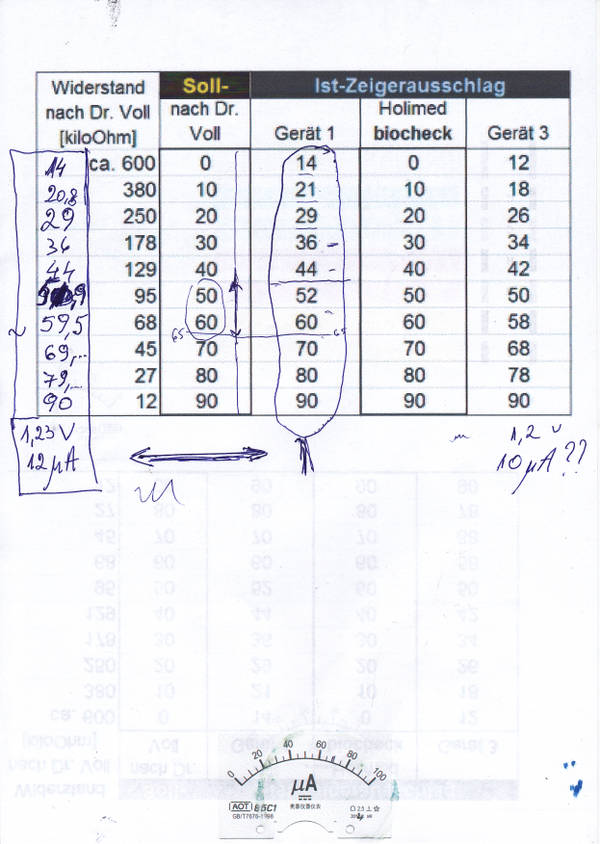 Widerstand nach Dr. Voll [kiloOhm] Soll- nach Dr. Voll Ist-Zeigerausschlag Gerät 1 Holimed biocheck Gerät 3
14 ca. 600 0 14 0 12
20,8 380 10 21 10 18
29 250 20 29 20 26
36 178 30 36 30 34
44 129 40 44 40 42
95 50 52 50 50
59,5 68 60 60 60 58
65
69,... 45 70 70 70 68
79,... 27 80 80 80 78
90 12 90 90 90 90
1,23 V
12 µA
1,2 V
10 µA??
0 20 40 60 80 100
µA
AOT 85C1
GB/T7676-1998